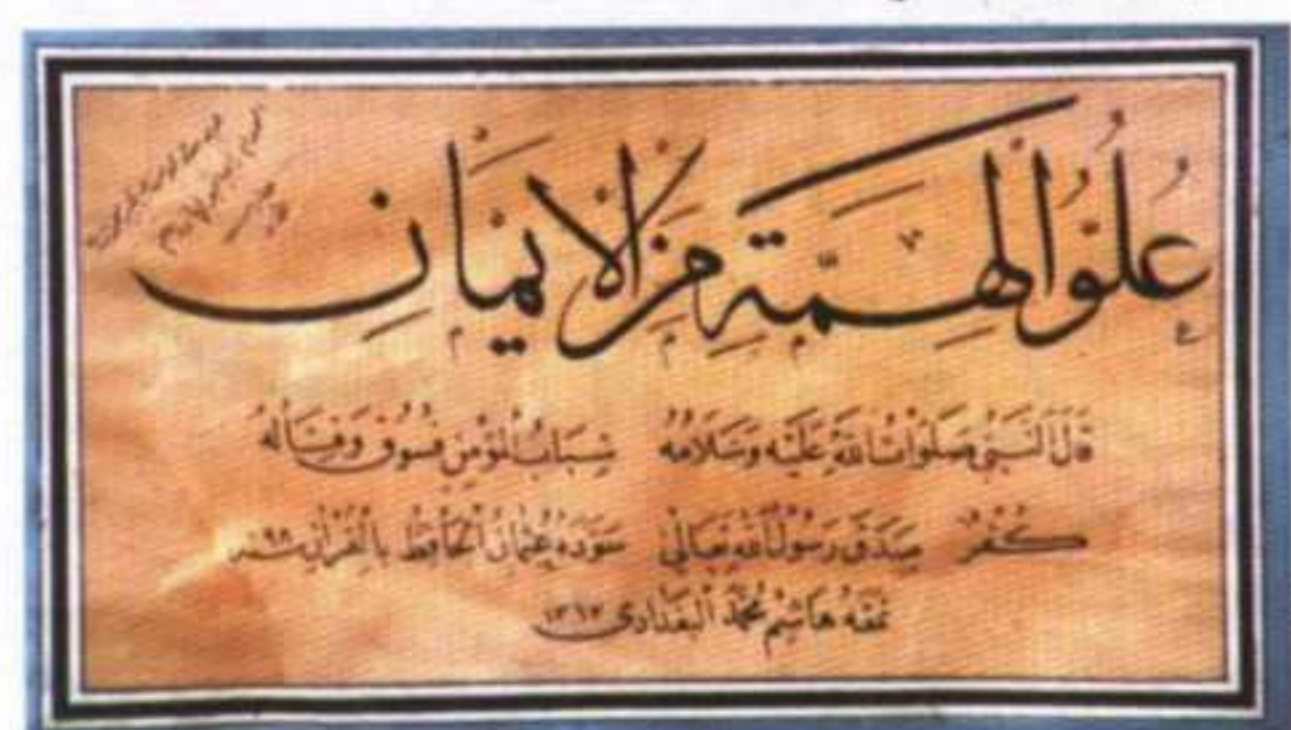 عُلُوُّ الْهِمَّةِ مِنَ الْإِيمَانِ
قَالَ النَّبِيُّ صَلَوَاتُ اللَّهِ عَلَيْهِ وَسَلَامُهُ سِبَابُ الْمُؤْمِنِ فُسُوقٌ وَقِتَالُهُ
كُفْرٌ صَدَقَ رَسُولُ اللَّهِ سَوَّدَهُ عُثْمَانُ الْحَافِظُ بِالْقُرْآنِ سنة ٩٨
نمقه هاشم محمد البغدادي ١٣٦٣